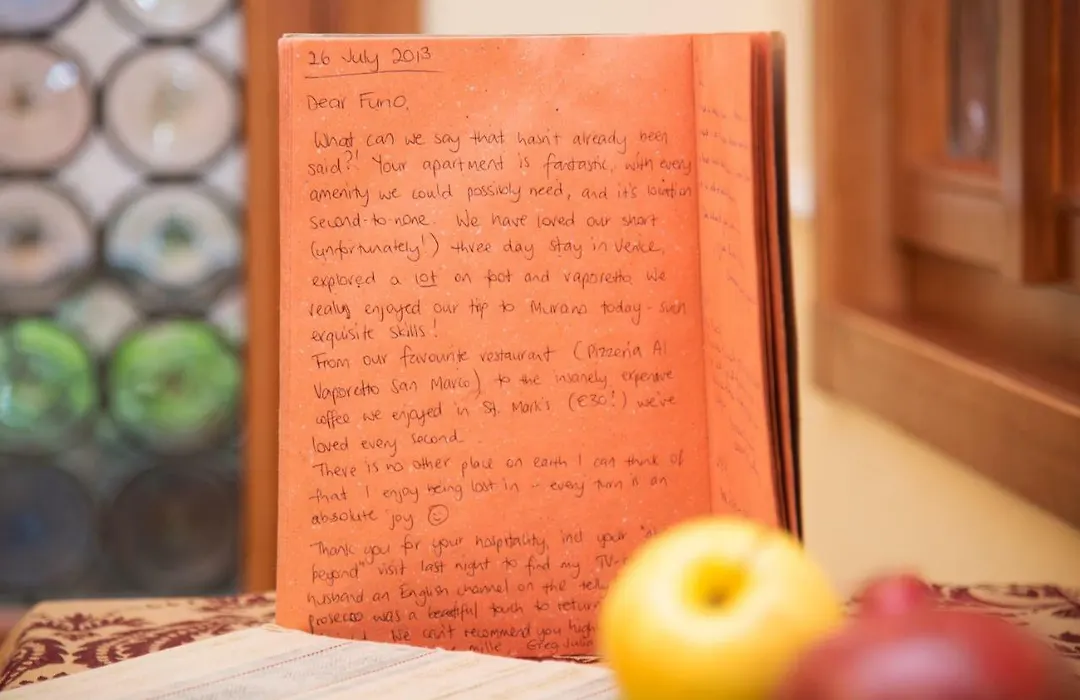 26 July 2013
Dear Funo,
What can we say that hasn't already been
said?! Your apartment is fantastic, with every
amenity we could possibly need, and it's location
second-to-none. We have loved our short
(unfortunately!) three day stay in Venice,
explored a lot on foot and vaporetto. We
really enjoyed our trip to Murano today - such
exquisite skills!
From our favourite restaurant (Pizzeria Al
Vaporetto San Marco) to the insanely expensive
coffee we enjoyed in St. Mark's (€30!) we've
loved every second.
There is no other place on earth I can think of
that I enjoy being lost in - every turn is an
absolute joy ☺
Thank you for your hospitality, incl your
beyond" visit last night to find my TV-
husband an English channel on the telly
prosecco was a beautiful touch to return
We can't recommend you high
mille Greg Julia